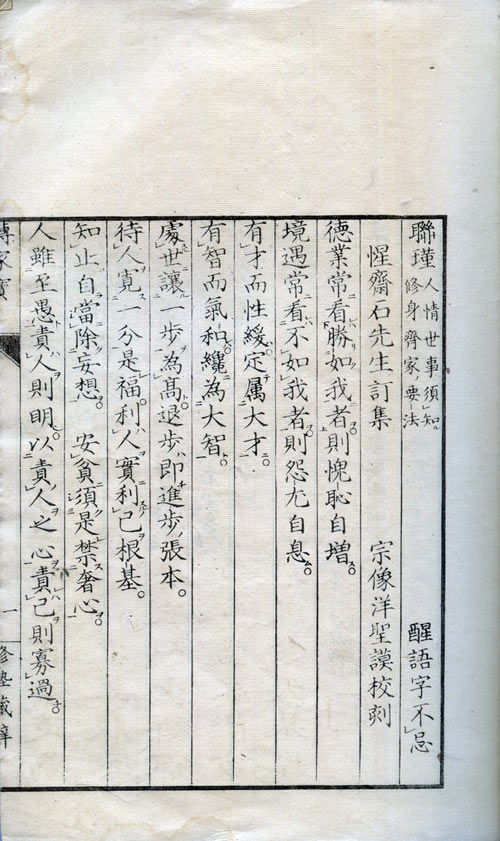 聯瑾 人情世事須知 修身齊家要法 醒語字不忌
惺齋石先生訂集 宗像洋聖謨校刻
德業常看勝如我者則愧恥自增
境遇常看不如我者則怨尤自息
有才而性緩定属大才
有智而氣和纔為大智
處世讓一步為髙退步即進步張本
待人寛一分是福利人實利己根基
知止自當除妄想 安貧須是禁奢心
人雖至愚責人則明以責人之心責己則寡過
傳家寳 一 修塾蔵梓